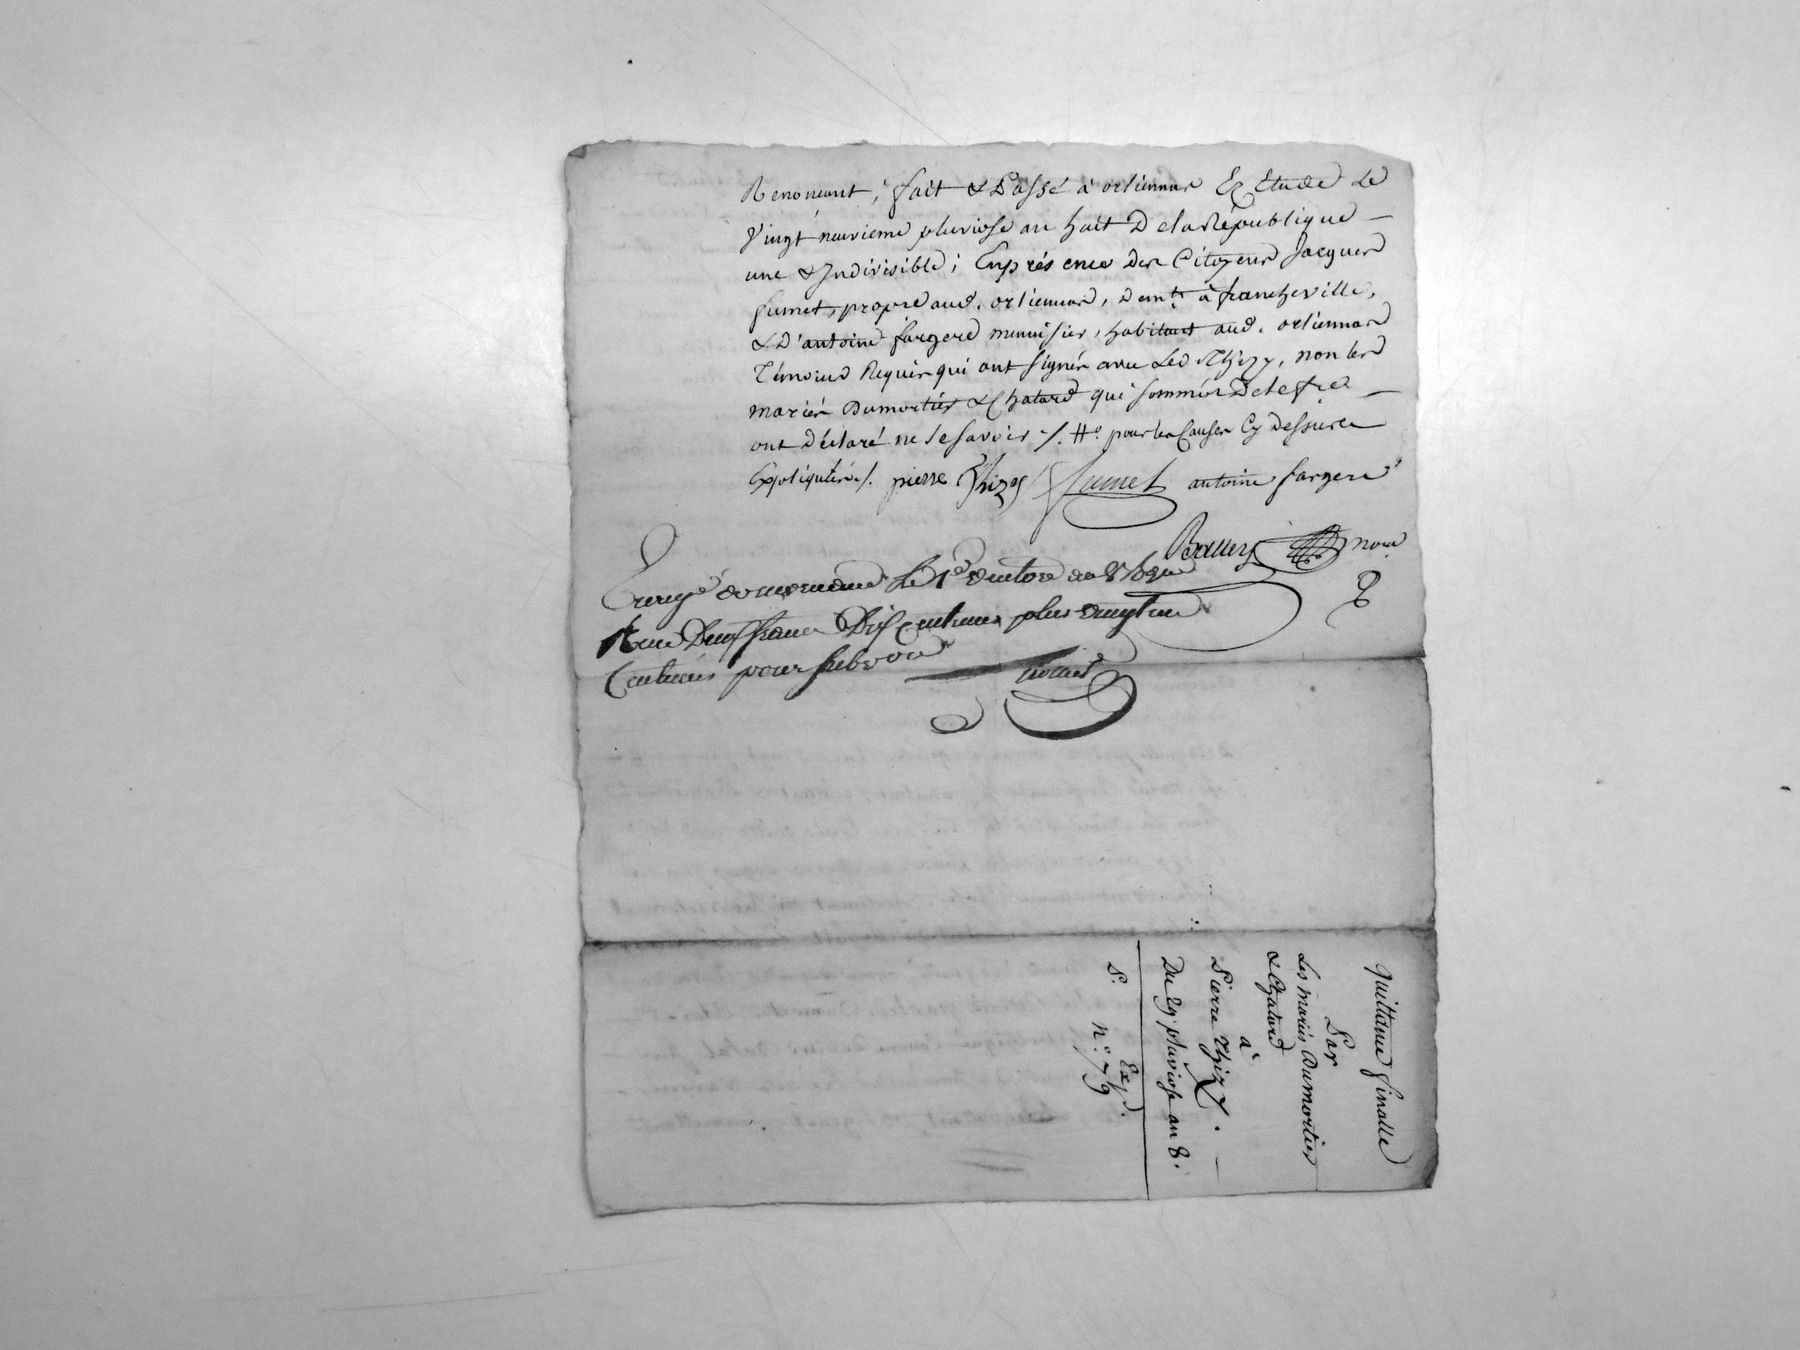 Renoncant, fait & Passé à orliennas Ez Etude Le
Vingt neuvieme pluviose an huit De la République
une & Indivisible; En présence des Citoyens Jacques
fumet, propre aud. orliennas, demt. à francheville,
& D'antoine fargere menuisier, habitant aud. orliennas
Témoins Requis qui ont signés avec Led Thizy, non les
mariés Dumortier & Chatard qui sommés De le fre
ont Déclaré ne le savoir /. pour les Causes Cy dessus
Expliquées /. pierre thizy fumet antoine fargere
nore
le 1er ventose an 8
Deux francs Dix Centimes plus vingt un
Centimes pour subvon
Quittance finalle
Par
Les mariés Dumortier
& Chatard
à
Pierre Thizy.
Du 29 pluviose an 8.
Exp.
P. n.º 79